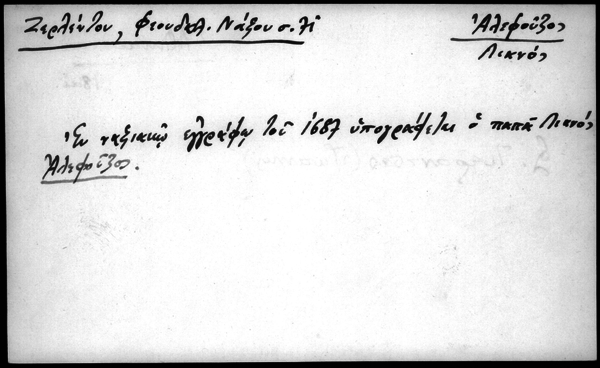 Ζερλέντου, Φεουδαλ. Νάξου σ.
Ἀλεφοῦζος
Λιανός
Ἐν ναξιακῷ ἐγγράφῳ τοῦ 1687 ὑπογράφεται ὁ παπᾶ Λιανός
Ἀλεφοῦζος.